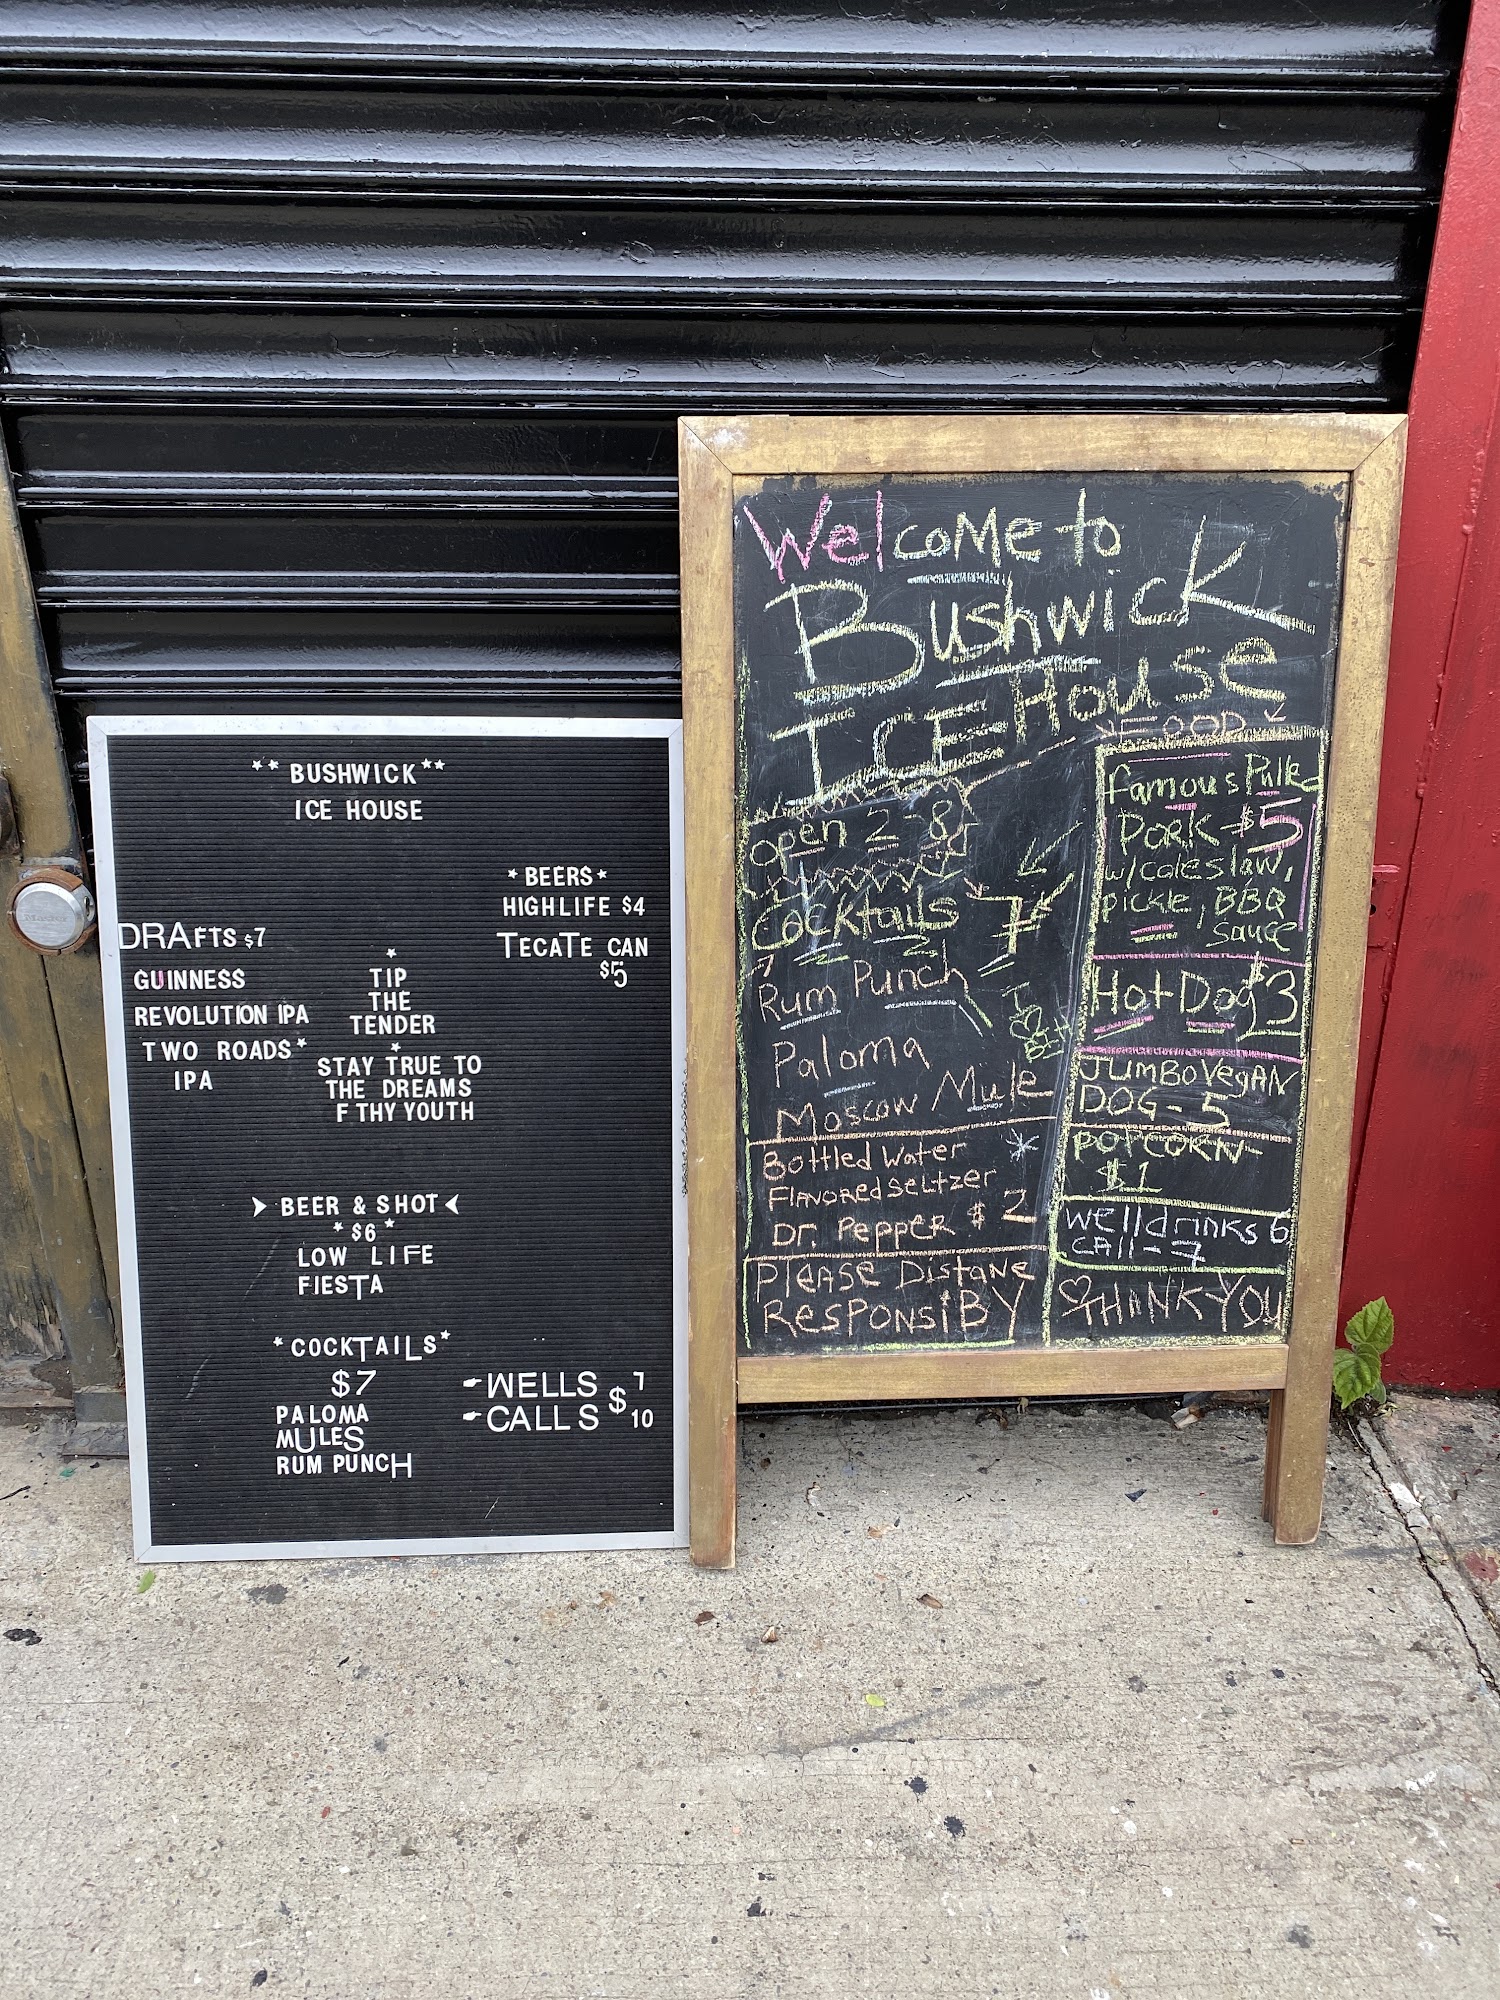 ** BUSHWICK **
ICE HOUSE
* BEERS *
HIGHLIFE $4
TECATE CAN
$5
DRAFTS $7
GUINNESS
REVOLUTION IPA
TWO ROADS *
IPA
*
TIP
THE
TENDER
*
STAY TRUE TO
THE DREAMS
F THY YOUTH
BEER & SHOT
* $6 *
LOW LIFE
FIESTA
* COCKTAILS *
$7
PALOMA
MULES
RUM PUNCH
WELLS $ 7
CALLS 10
Welcome to
Bushwick
ICE House
Open 2-8
Cocktails 7
Rum Punch
Paloma
Moscow Mule
Bottled Water
Flavored Seltzer
Dr. Pepper $2
Please Distane
ResponsiBY
FOOD
famous Pulled
Pork - $5
w/coleslaw,
pickle, BBQ
sauce
Hot Dog $3
JUMBO VegAN
DOG - 5
POPCORN -
$1
Well drinks 6
CAll - 7
THANK YOU
Master